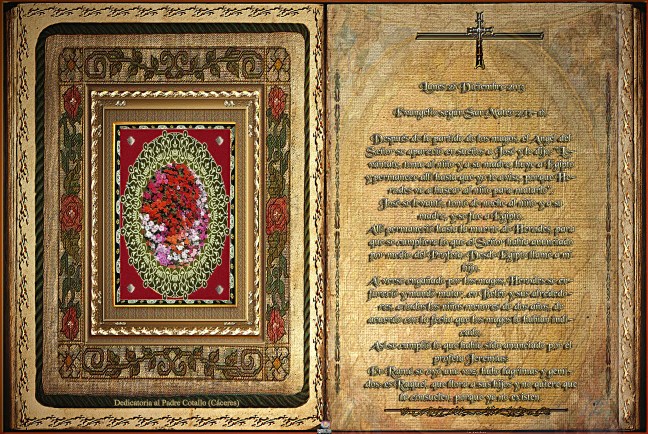 Dedicatoria al Padre Cotallo (Cáceres)
Lunes 28 Diciembre 2015
Evangelio según San Mateo 2,13-18
Después de la partida de los magos, el Ángel del
Señor se apareció en sueños a José y le dijo: "Le-
vántate, toma al niño y a su madre, huye a Egipto
y permanece allí hasta que yo te avise, porque He-
rodes va a buscar al niño para matarlo".
José se levantó, tomó de noche al niño y a su
madre, y se fue a Egipto.
Allí permaneció hasta la muerte de Herodes, para
que se cumpliera lo que el Señor había anunciado
por medio del Profeta: Desde Egipto llamé a mi
hijo.
Al verse engañado por los magos, Herodes se en-
fureció y mandó matar, en Belén y sus alrededo-
res, a todos los niños menores de dos años, de
acuerdo con la fecha que los magos le habían indi-
cado.
Así se cumplió lo que había sido anunciado por el
profeta Jeremías:
En Ramá se oyó una voz, hubo lágrimas y gemi-
dos: es Raquel, que llora a sus hijos y no quiere que
la consuelen, porque ya no existen.